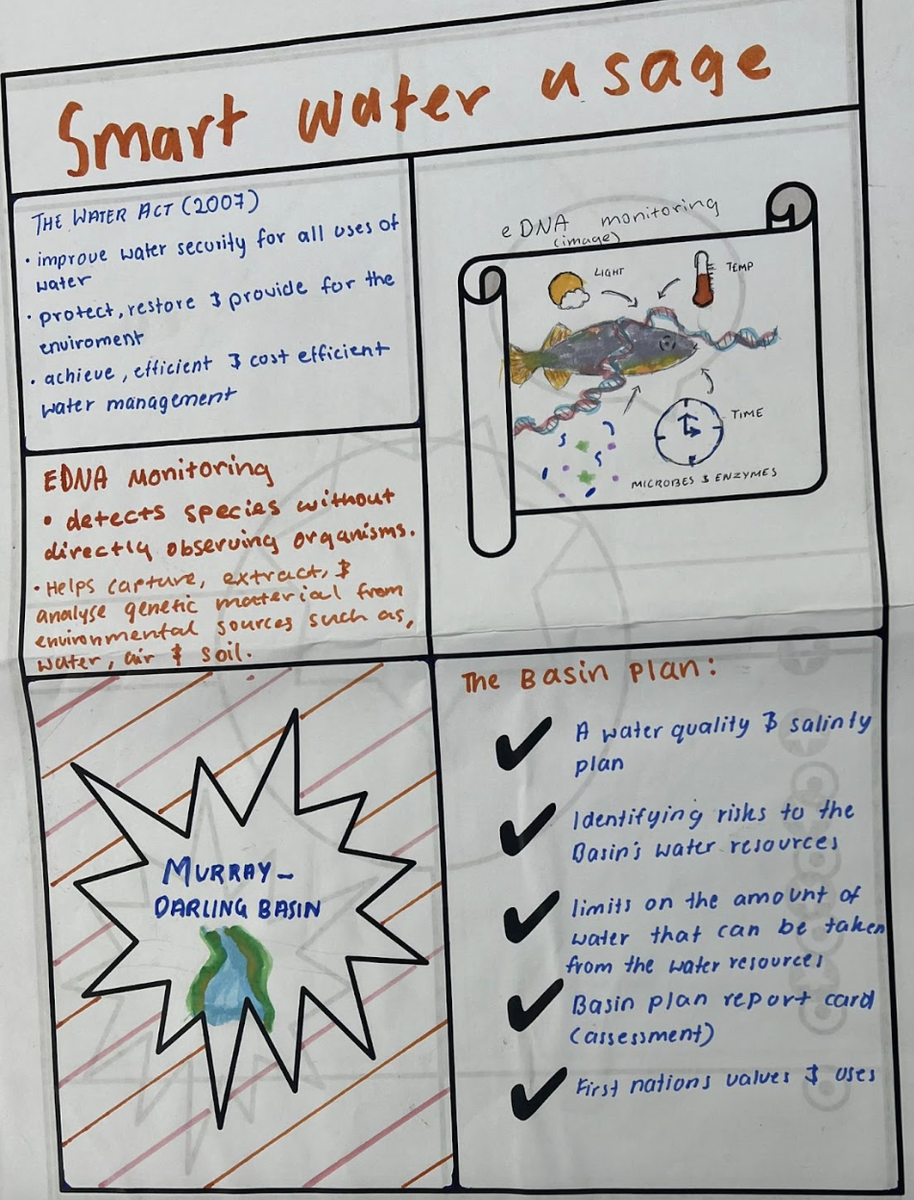 Smart water usage
THE WATER ACT (2007)
• improve water security for all uses of
water
• protect, restore & provide for the
enviroment
• achieve, efficient & cost efficient
water management
eDNA monitoring
(image)
LIGHT
TEMP
TIME
MICROBES & ENZYMES
EDNA Monitoring
• detects species without
directly observing organisms.
• Helps capture, extract, &
analyse genetic material from
environmental sources such as,
water, air & soil.
MURRAY-
DARLING BASIN
The Basin Plan:
✔ A water quality & salinity
plan
✔ Identifying risks to the
Basin's water resources
✔ limits on the amount of
water that can be taken
from the water resources
✔ Basin plan report card
(assessment)
✔ First nations values & uses